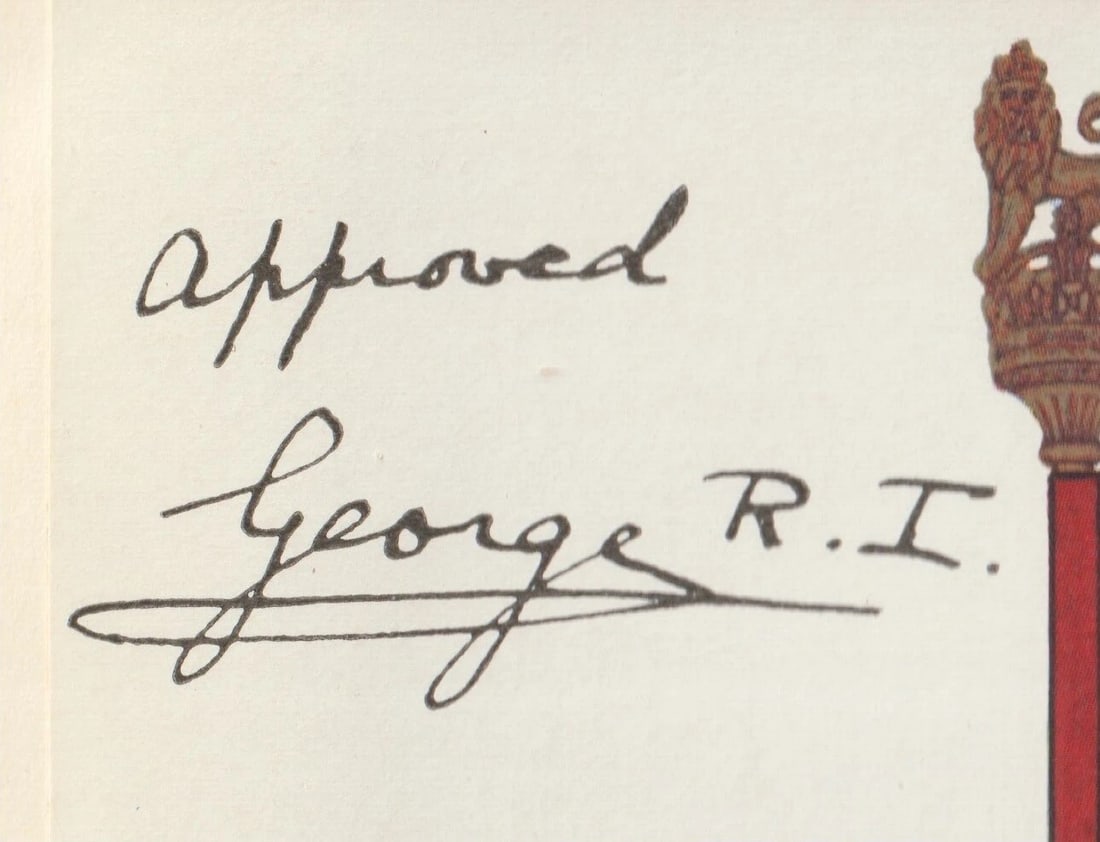 approved
George R.I.